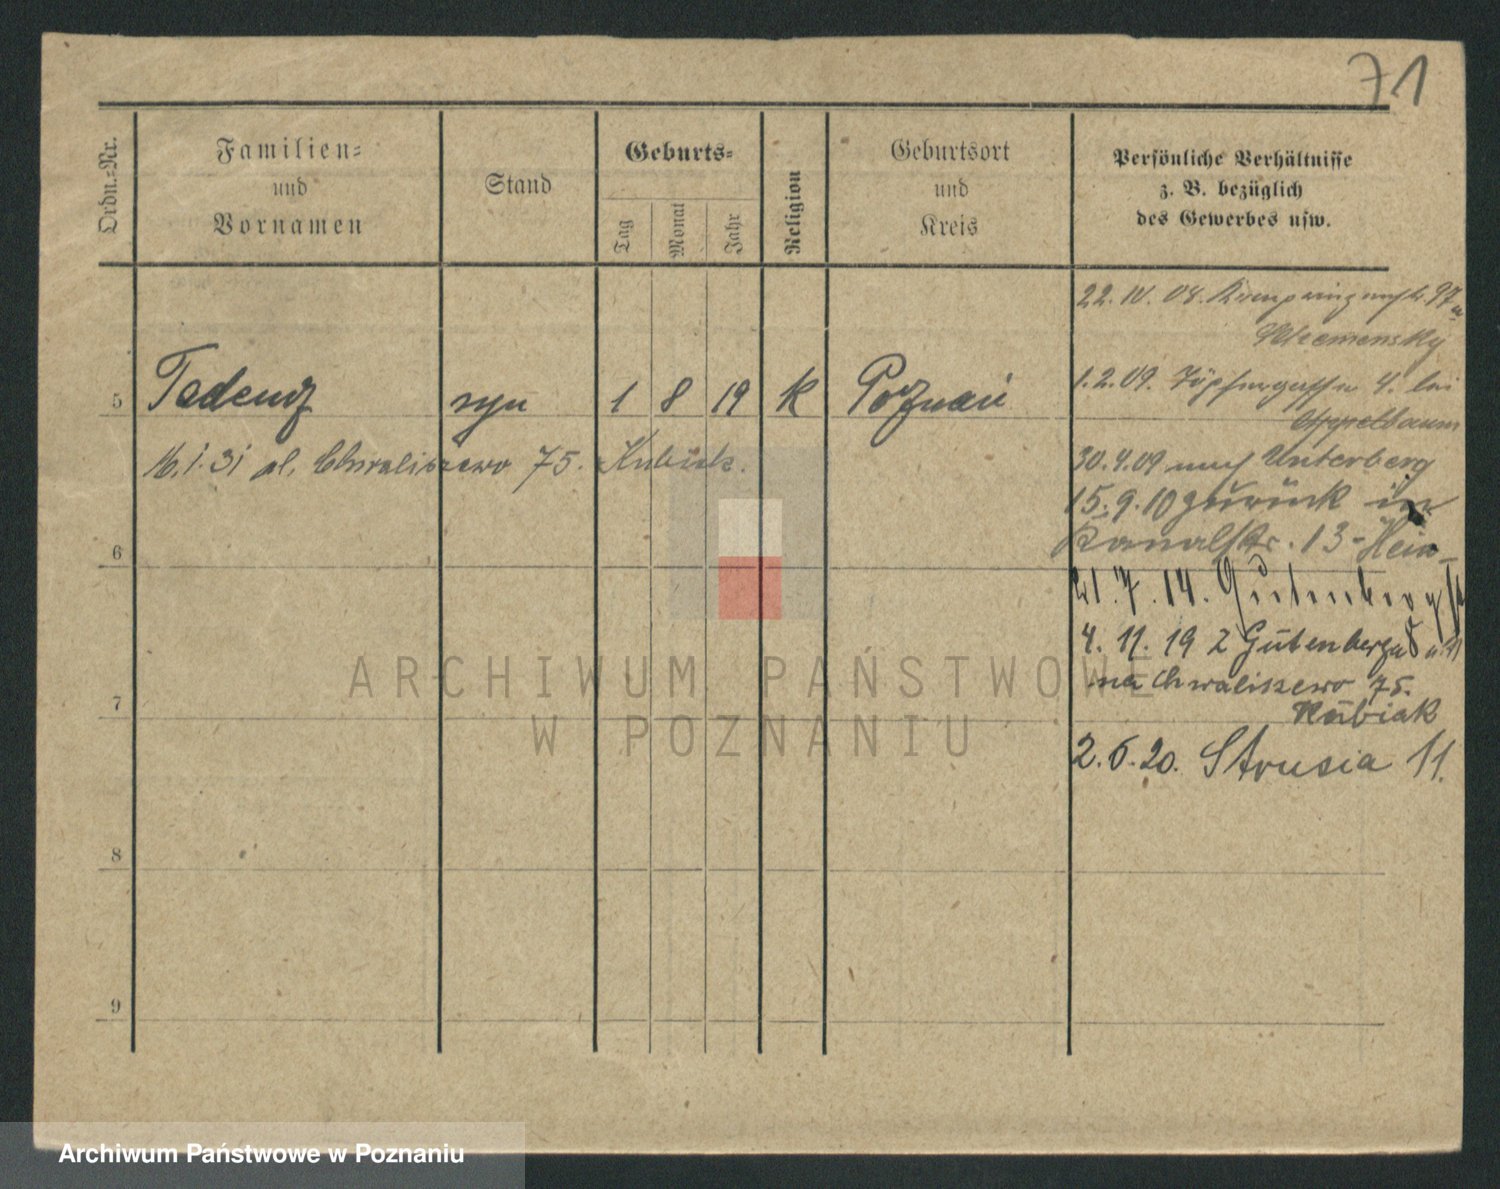 71
Ordn.-Nr.
Familien-
und
Vornamen
Stand
Geburts-
Tag
Monat
Jahr
Religion
Geburtsort
und
Kreis
Persönliche Verhältnisse
z. B. bezüglich
des Gewerbes usw.
22. IV. 08.
1.2.09. 4. bei
Appelbaum
5 Tadeusz syn 1 8 19 k Poznań
16.1.31 ul. Chwaliszewo 75. Kubiak.
30.4.09 nach Unterberg
15.9.10 zurück in
Kanalstr. 13 - Hein
6
21.7.14. Gutenbergstr
4. 11. 19 z Gutenberga 8
na Chwaliszewo 75.
Kubiak
7
2.6.20. Strusia 11.
8
9
ARCHIWUM PAŃSTWOWE
W POZNANIU
Archiwum Państwowe w Poznaniu